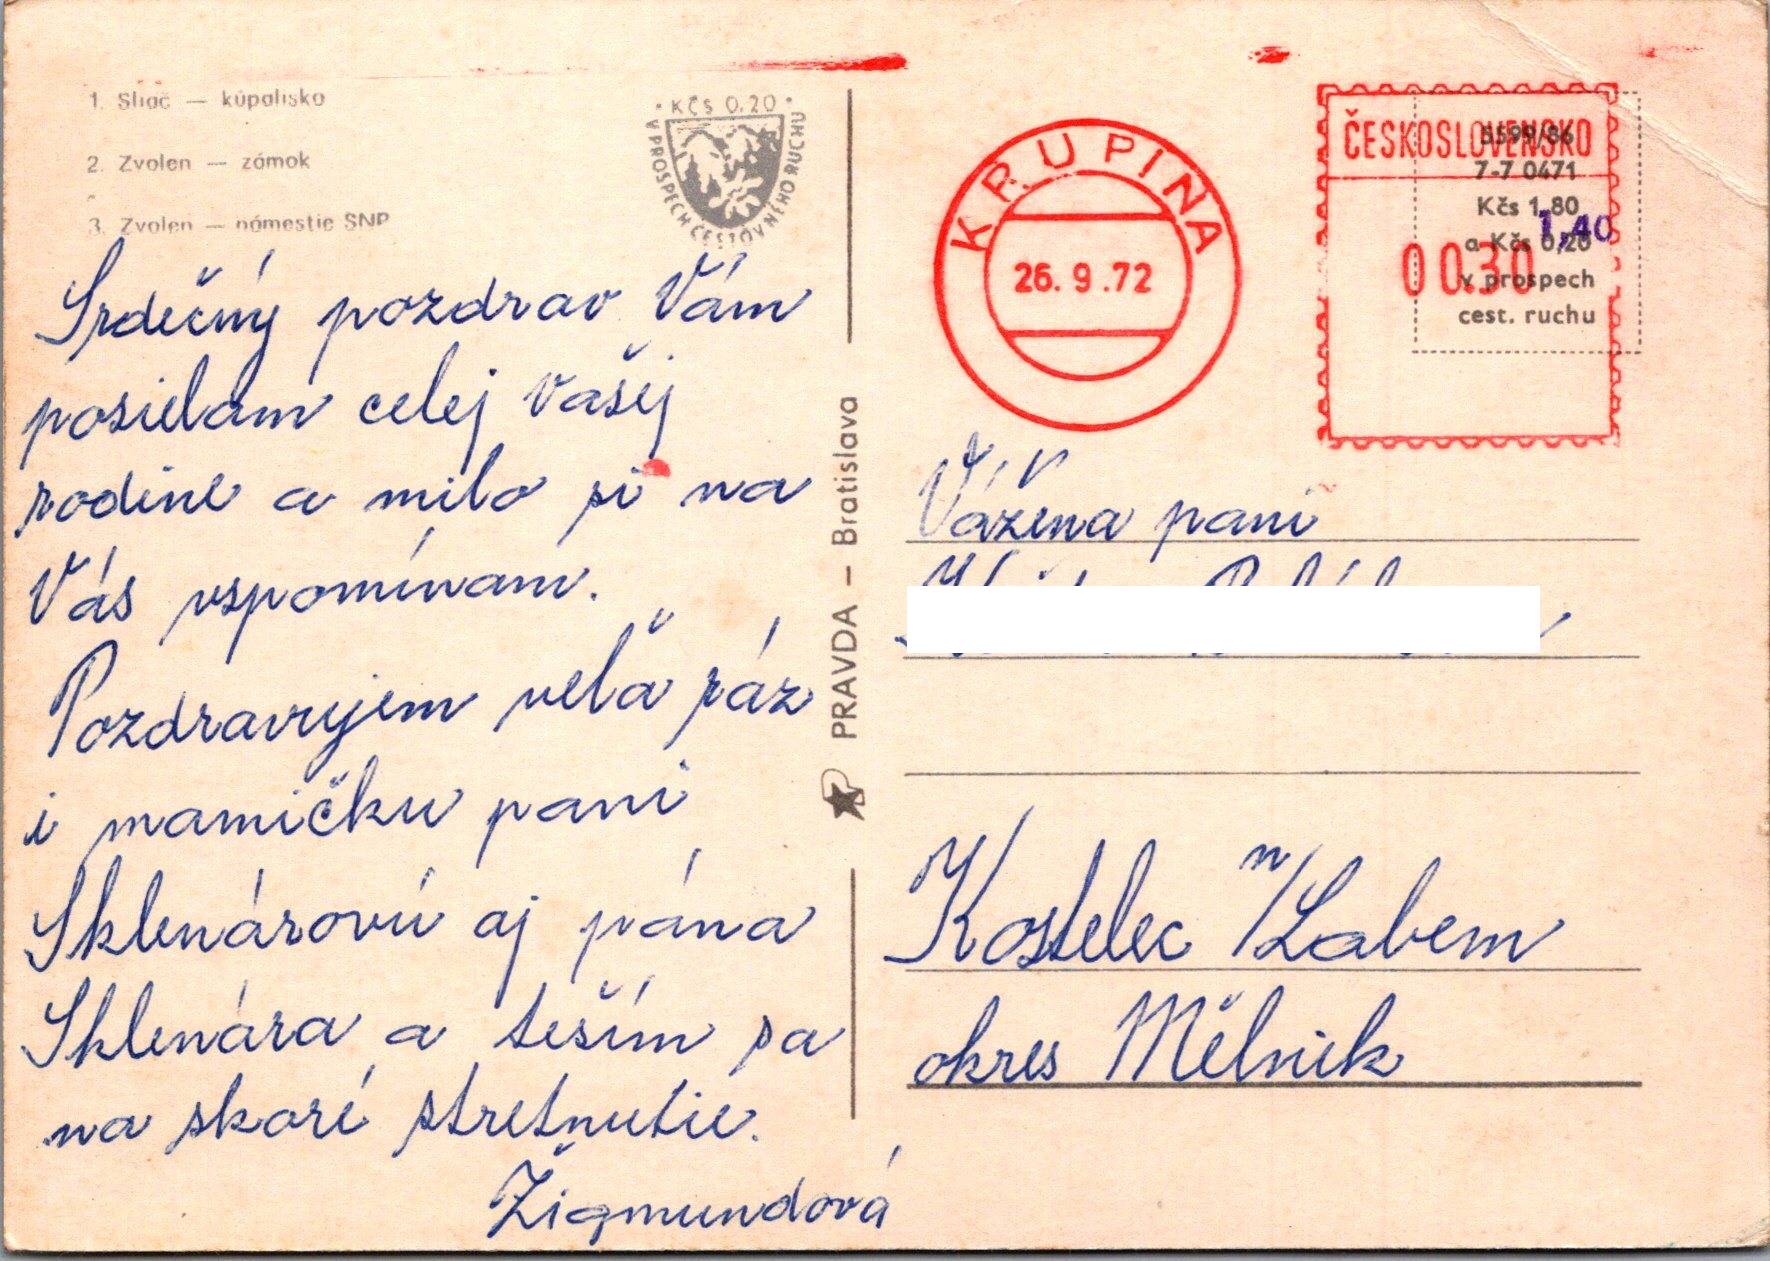 1. Sliač — kúpalisko
2. Zvolen — zámok
3. Zvolen — námestie SNP
· Kčs 0,20 ·
V PROSPECH CESTOVNÉHO RUCHU
Srdečný pozdrav Vám
posielam celej Vašej
rodine a milo si na
Vás vspomínam.
Pozdravujem veľa ráz
i mamičku pani
Sklenárovú aj pána
Sklenára a teším sa
na skoré stretnutie.
Žigmundová
PRAVDA — Bratislava
KRUPINA
26. 9 .72
ČESKOSLOVENSKO
00.30
7-7 0471
Kčs 1,80
1,40
a Kčs 0,20
v prospech
cest. ruchu
Vážená pani
Kostelec n/Labem
okres Mělnik